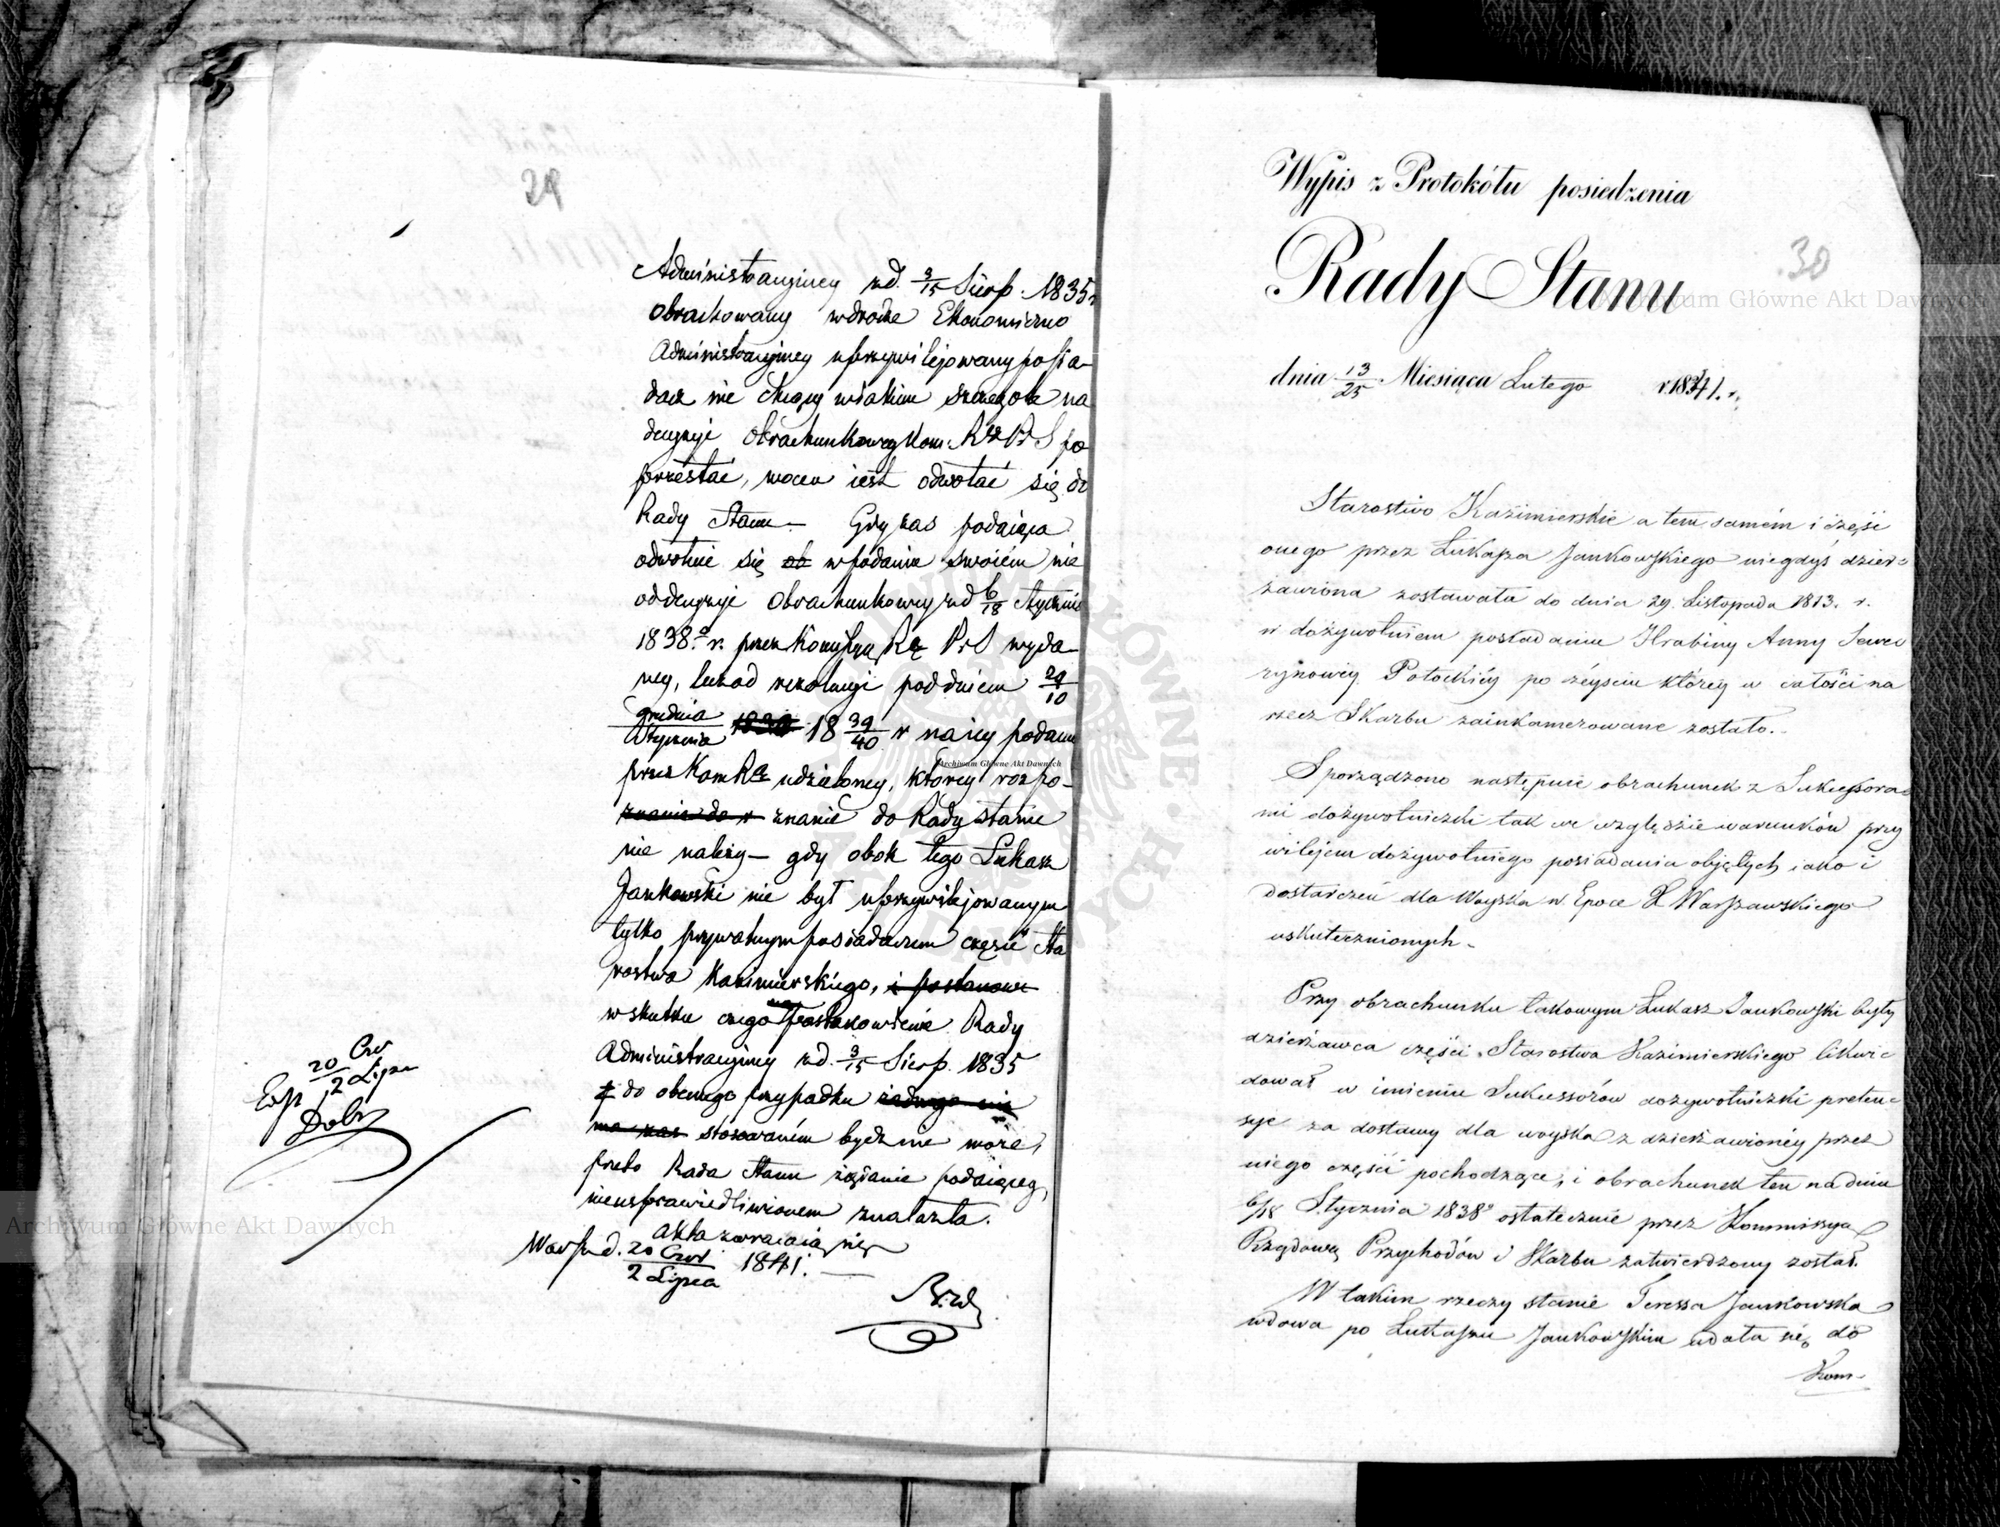 29
Administracyjney zd. 3/15 Sierp. 1835 r
obrachowany wdrodze Ekonomiczno
Administracyjney uprzywilejowany posia-
dacz nie chcący wtakim szczególe na
decyzyi obrachunkowey Kom: R P i S po
przestać, mocen iest odwołać się do
Rady Stanu — Gdy zaś podaiąca
odwołuie się od w podaniu swoiém nie
od decyzyi obrachunkowey zd 6/18 Stycznia
1838.o r. przez Kommissyą Rz P i S wyda-
ney, lecz od rezolucyi pod dniem 29/10
Grudnia/Stycznia 1839 18 39/40 r na iey podanie
przez Kom Rz udzieloney, którey rozpo-
znanie do r znanie do Rady Stanu
nie należy — gdy obok tego Łukasz
Jankowski nie był uprzywilejowanym
tylko prywatnym posiadaczem części Sta
rostwa Kazimierskiego, i postanowi
wskutku czego postanowienie Rady
Administracyjney zd. 3/15 Sierp. 1835
do obecnego przypadku żadnego nie
ma zas stosowaném bydź nie może,
przeto Rada Stanu żądanie podaiącey,
nieusprawiedliwionem znalazła.
Akta zwracaią się
Warsz d. 20 Czer/2 Lipca 1841.
20 Czer/2 Lipca
Exp
Wypis z Protokółu posiedzenia
Rady Stanu
30
dnia 13/25 Miesiąca Lutego r. 1841. r.
Starostwo Kazimierskie a tem samém i część
onego przez Łukasza Jankowskiego niegdyś dzier-
żawiona zostawała do dnia 29. Listopada 1813. r.
w dożywotniem posiadaniu Hrabiny Anny Sewe
rynowéy Potockiéy po zéyściu któréy w całości na
rzecz Skarbu zainkamerowane zostało.
Sporządzono następnie obrachunek z Sukcessora-
mi dożywotniczki tak we względzie warunków przy
wilejem dożywotniego posiadania objętych iako i
dostarczeń dla Woyska w Epoce X. Warszawskiego
uskutecznionych.
Przy obrachunku takowym Łukasz Jankowski były
dzierżawca części Starostwa Kazimierskiego likwi-
dował w imieniu Sukcessorów dożywotniczki preten-
sye za dostawy dla woyska z dzierżawionéy przez
niego części pochodzące, i obrachunek ten na dniu
6/18 Stycznia 1838o ostatecznie przez Kommissyą
Rządową Przychodów i Skarbu zatwierdzony został.
W takim rzeczy stanie Teressa Jankowska
wdowa po Łukaszu Jankowskim udała się do
Kom-
Archiwum Główne Akt Dawnych
Archiwum Główne Akt Dawnych
Archiwum Główne Akt Dawnych